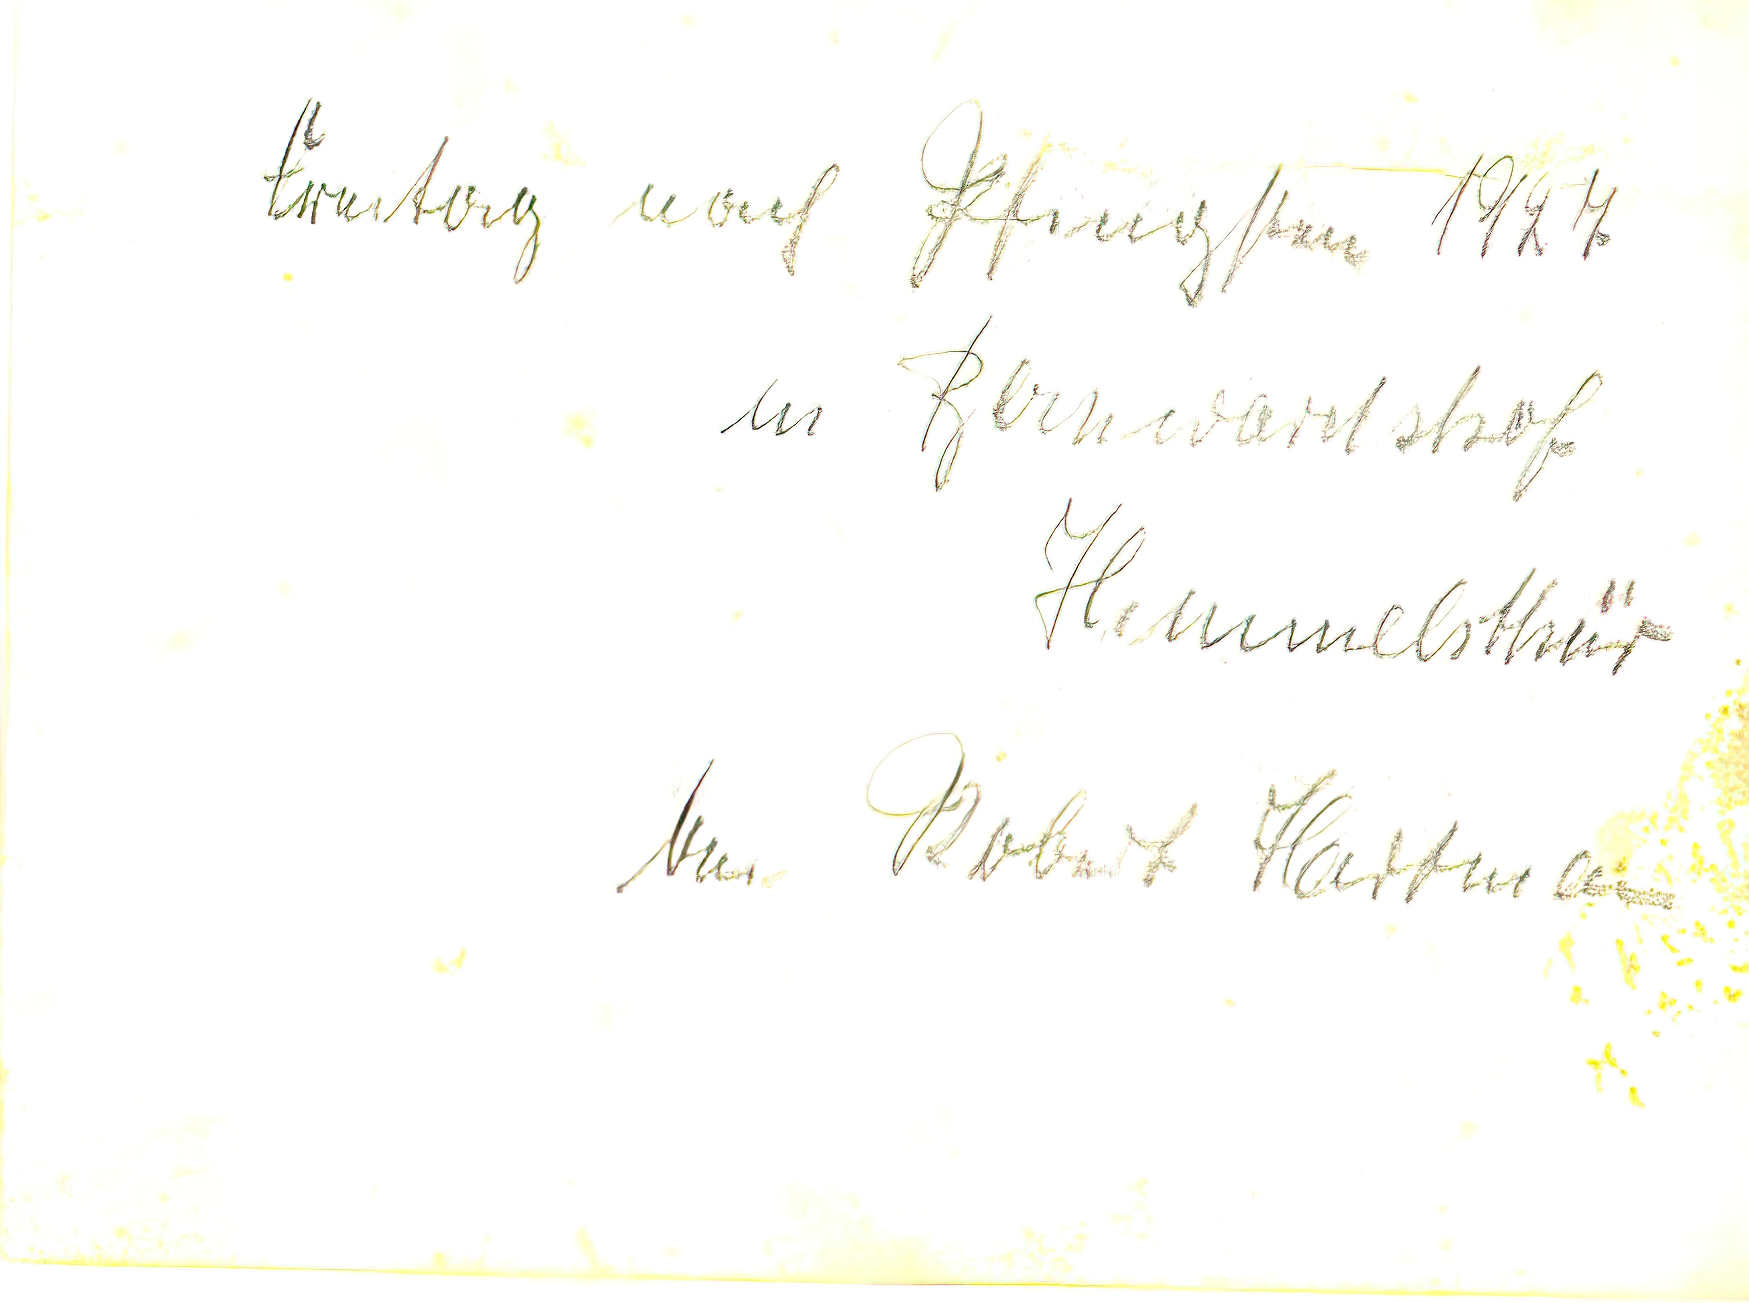 Freitag nach Pfingsten 1927
in Bernwardshof
Himmelsthür
Robert Hartmann